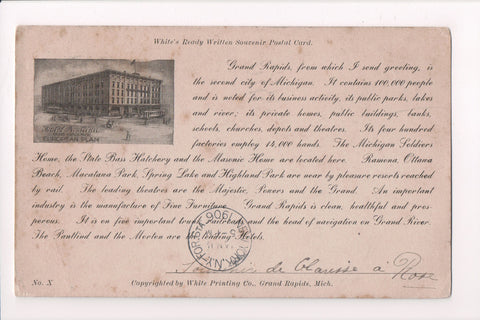 White's Ready Written Souvenir Postal Card.
Grand Rapids, from which I send greeting, is
the second city of Michigan. It contains 100,000 people
and is noted for its business activity, its public parks, lakes
and river; its private homes, public buildings, banks,
schools, churches, depots and theatres. Its four hundred
factories employ 14,000 hands. The Michigan Soldiers
EUROPEAN PLAN
Home, the State Bass Hatchery and the Masonic Home are located here. Ramona, Ottawa
Beach, Macatawa Park, Spring Lake and Highland Park are near by pleasure resorts reached
by rail. The leading theatres are the Majestic, Powers and the Grand. An important
industry is the manufacture of Fine Furniture. Grand Rapids is clean, healthful and pros-
perous. It is on five important trunk railroads and the head of navigation on Grand River.
The Pantlind and the Morton are the leading Hotels.
1906
Souvenir de Clarisse à Rose
No. X
Copyrighted by White Printing Co., Grand Rapids, Mich.